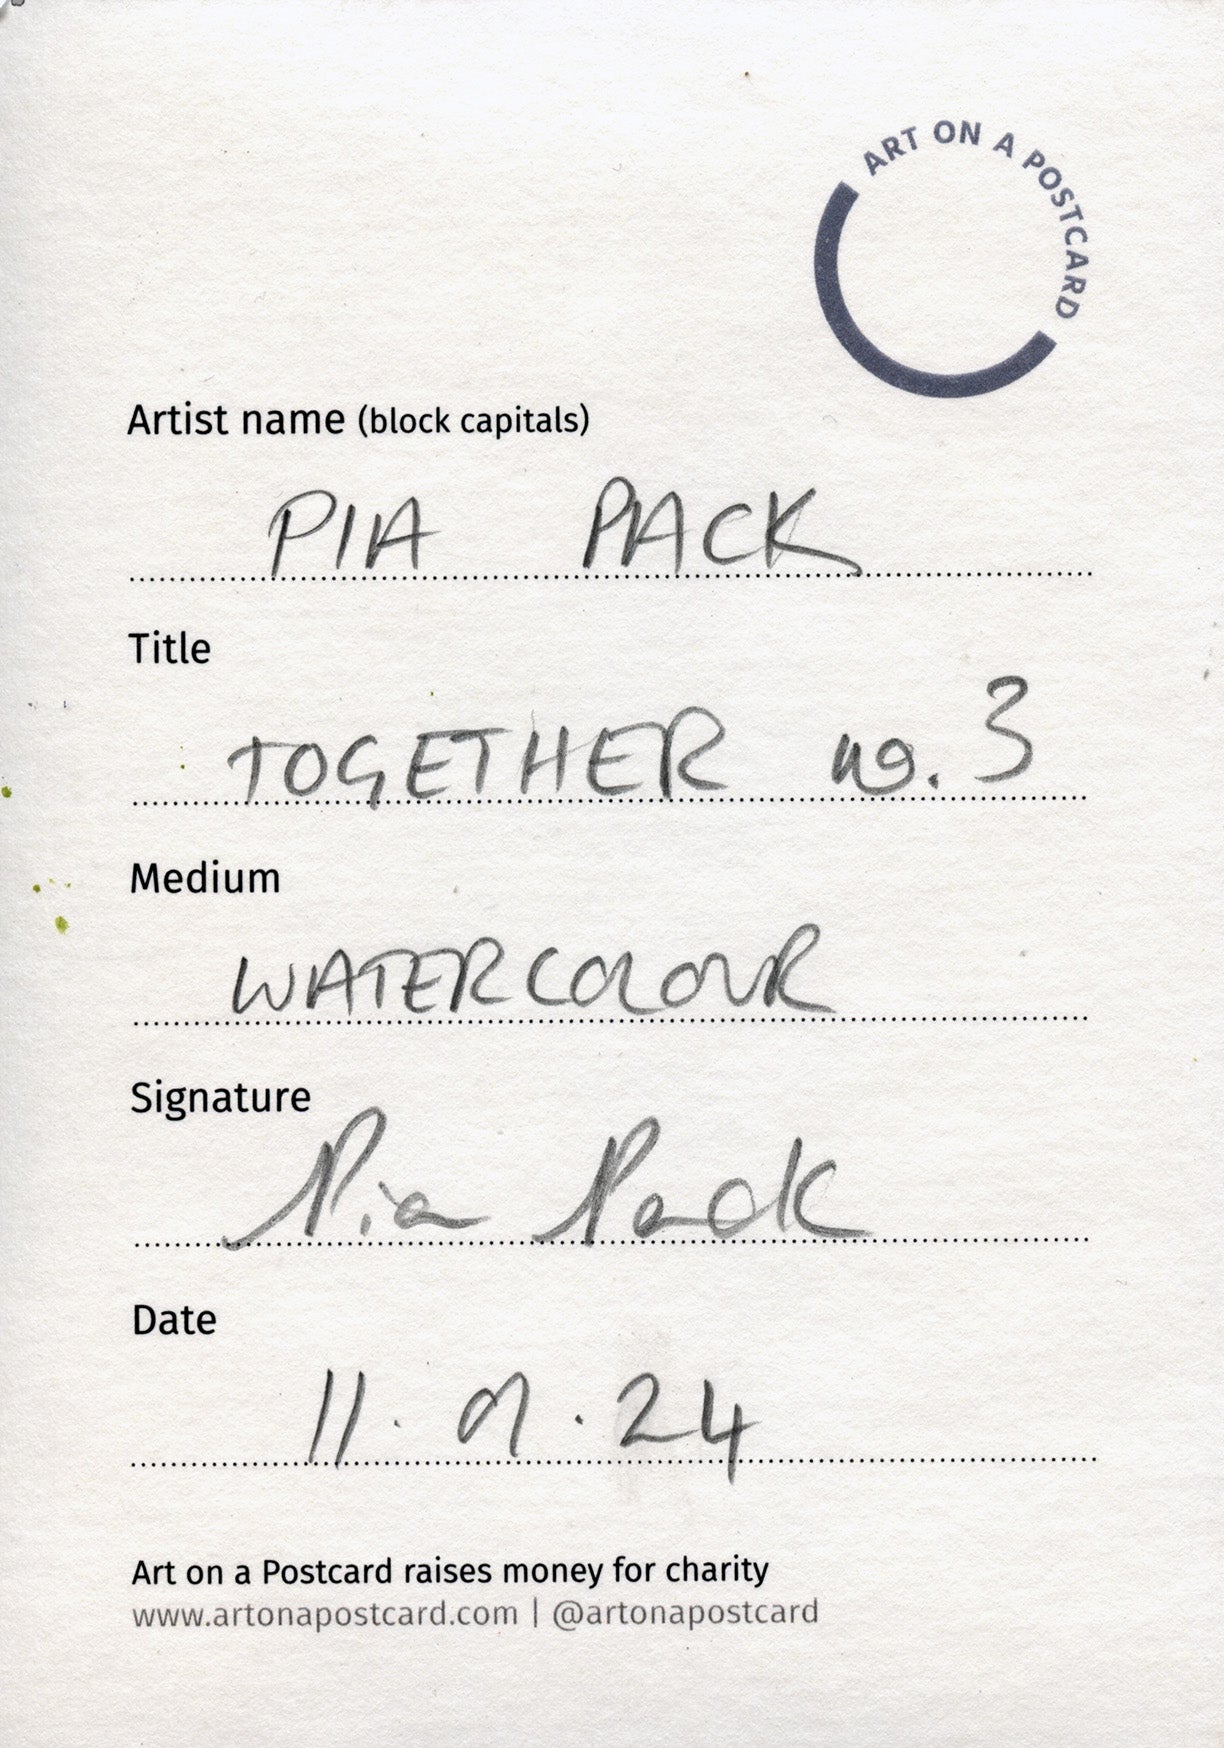 ART ON A POSTCARD
Artist name (block capitals)
PIA PACK
Title
TOGETHER no. 3
Medium
WATERCOLOUR
Signature
Pia Pack
Date
11. 01. 24
Art on a Postcard raises money for charity
www.artonapostcard.com | @artonapostcard